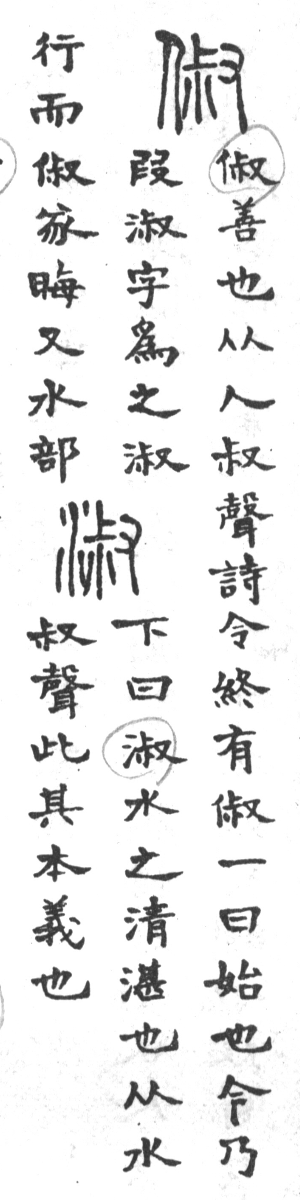 俶
俶善也从人叔聲詩令終有俶一曰始也今乃
叚淑字爲之淑
行而俶篆晦又水部
淑
下曰淑水之清湛也从水
叔聲此其本義也